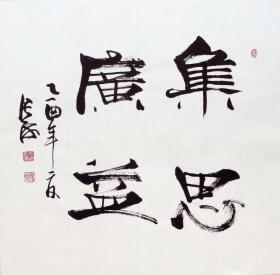 集思
廣益
乙酉年夏